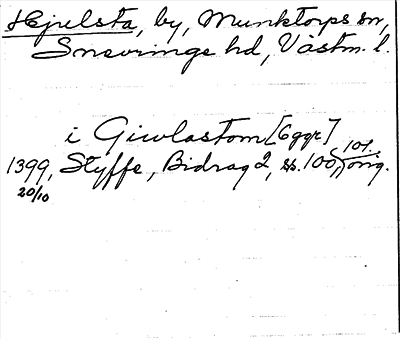 Hjulsta, by, Munktorps sn,
Snevringe hd, Västm. l.
i Giwlastom [6 ggr]
1399, Styffe, Bidrag 2, ss. 100, 101. orig.
20/10